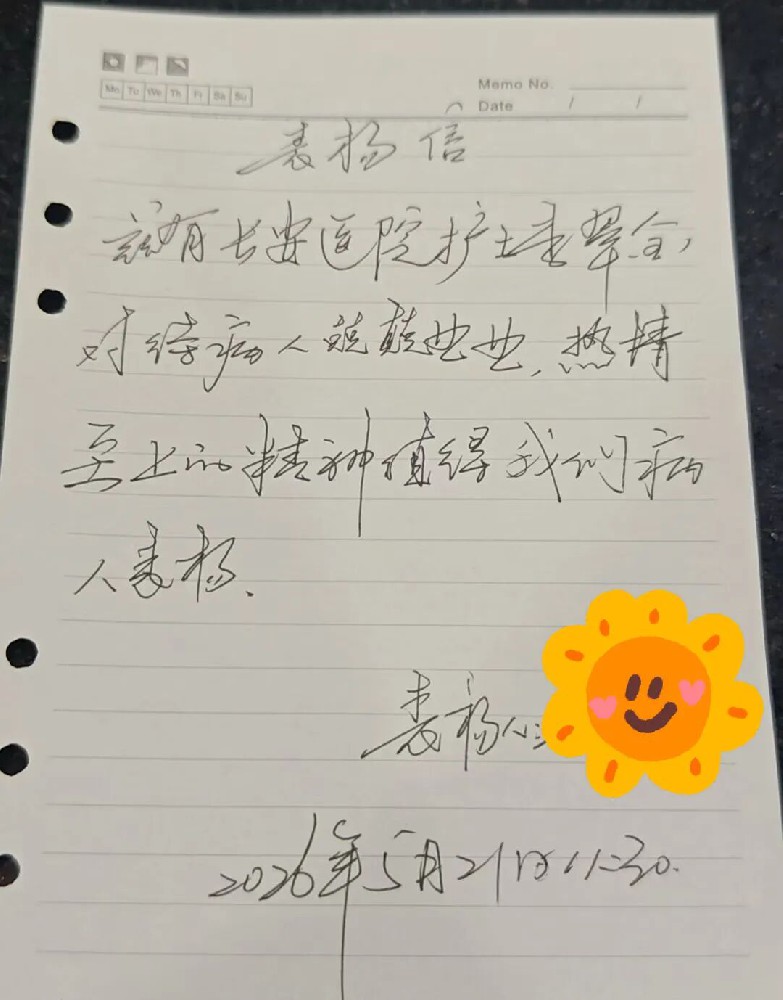 Mo Tu We Th Fr Sa Su
Memo No.
Date / /
表扬信
兹有长安医院护士翠全,
对待病人兢兢业业,热情
至上的精神值得我们病
人表扬.
表扬人:
2026年5月21日11:30.